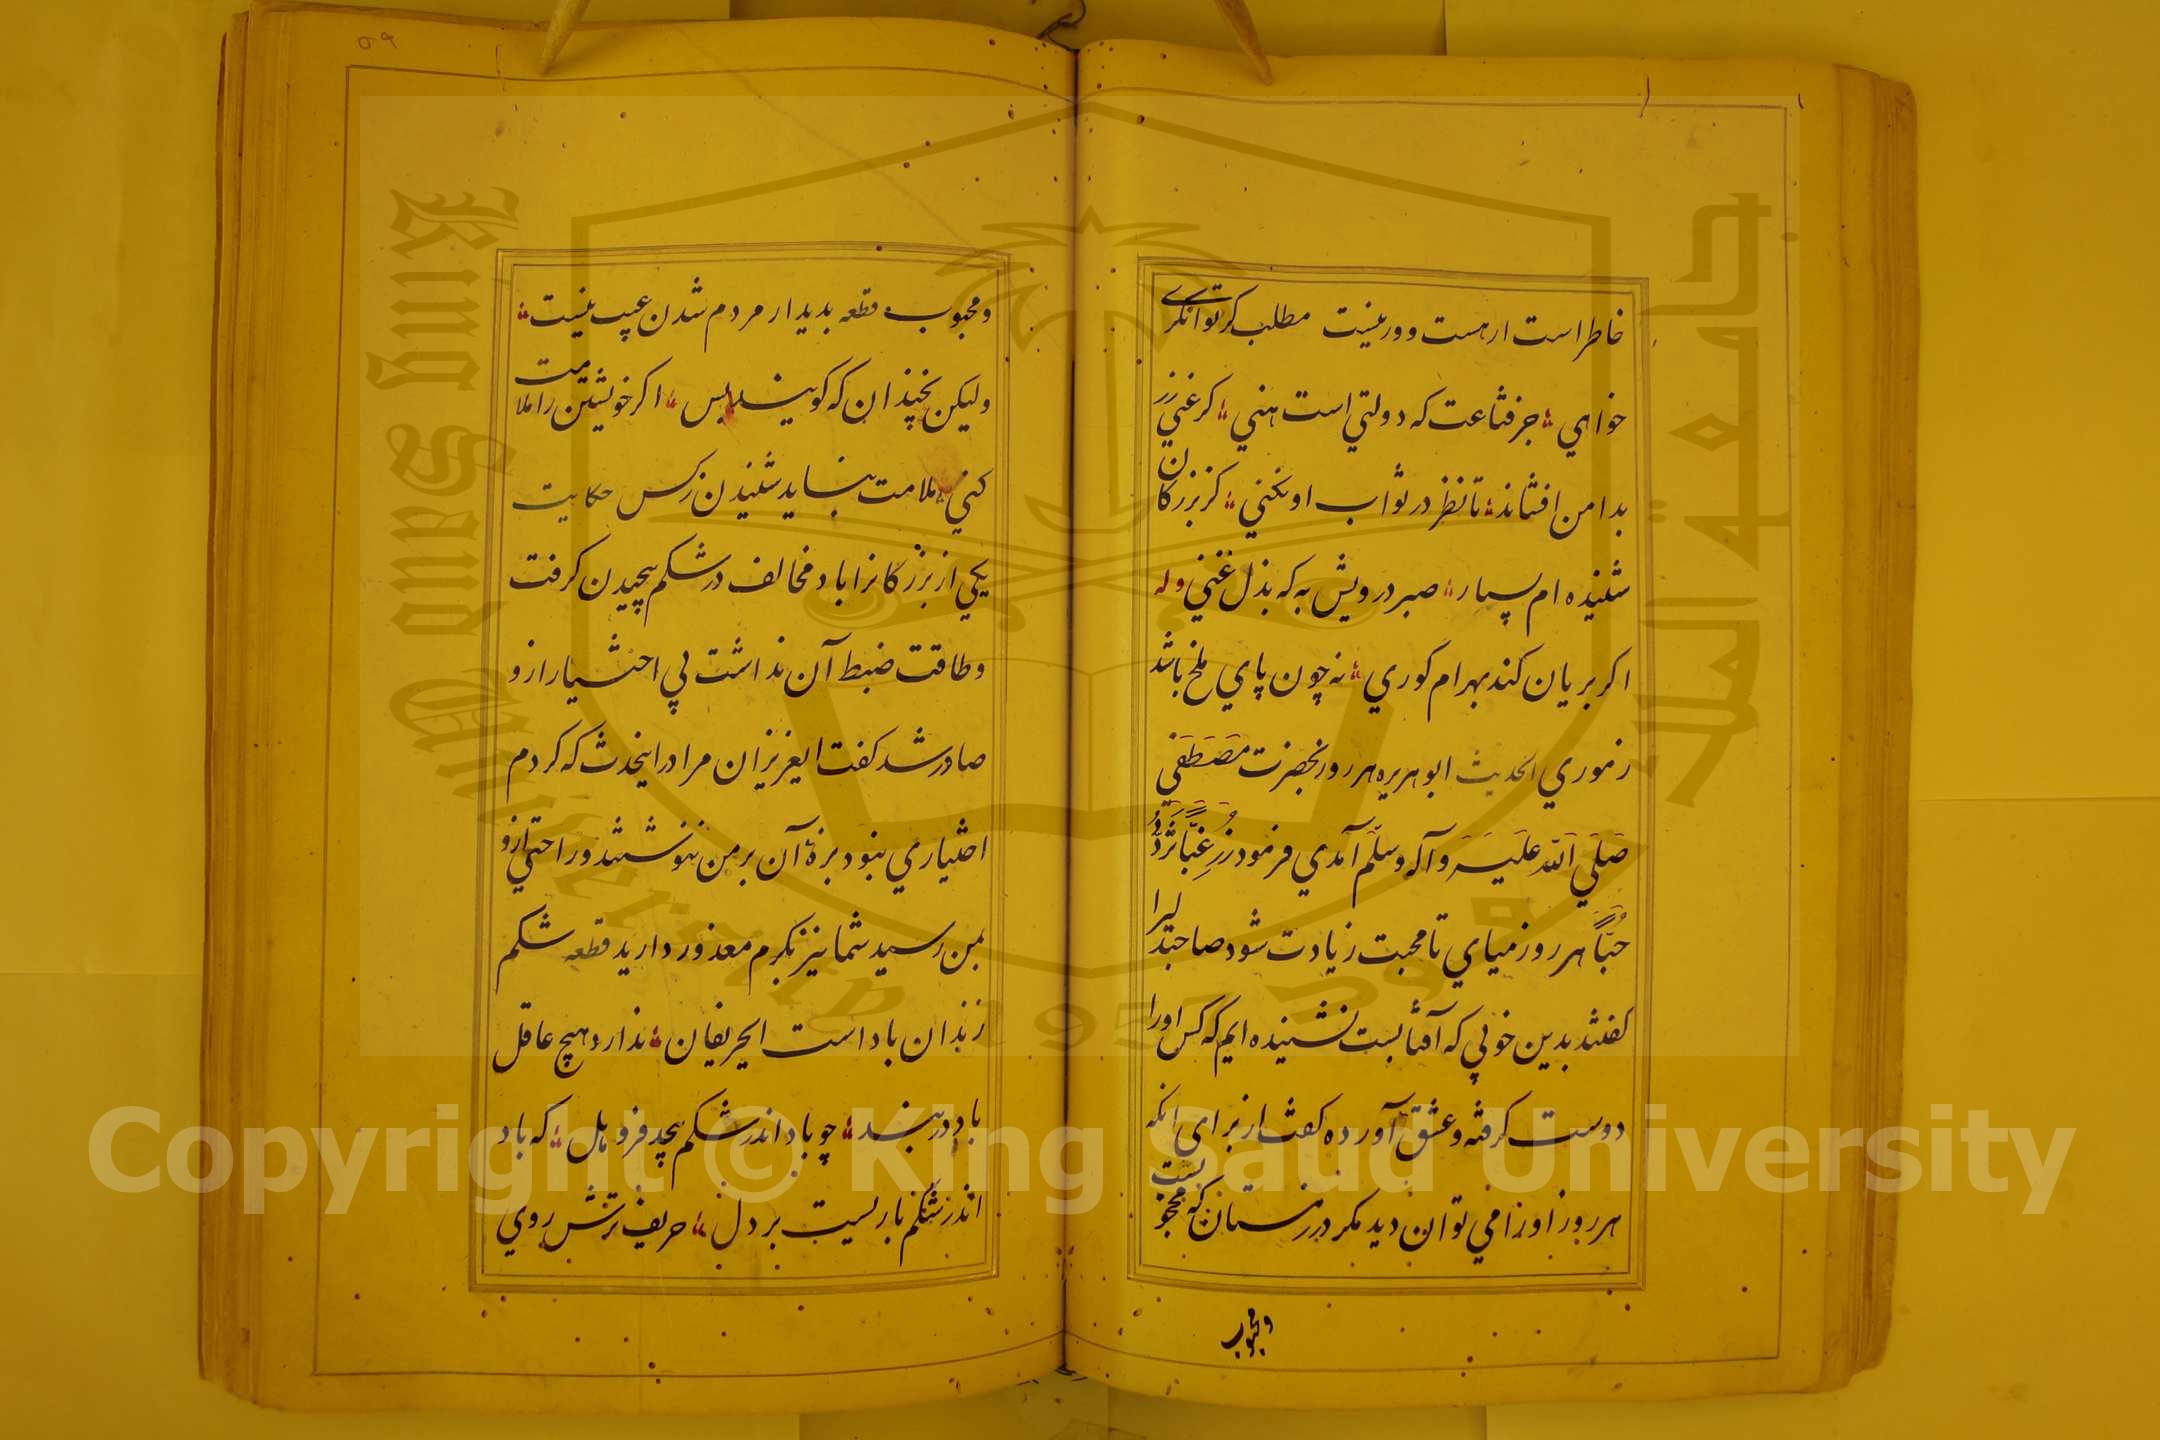 خاطراست ار هست و ور نیست مطلب کر توانکری
خواهي جز قناعت که دولتي است هني کر غني زر
بدامن افشاند تا نظر در ثواب او نکني کز بزرکان
شنیده ام بسیار صبر درویش به که بذل غني وله
اکر بریان کند بهرام کوري نه چون پاي ملخ باشد
ز موري الحدیث ابو هریره هر روز بحضرت مصطفي
صَلَّي اللّه عَلَیه وَ آله وسلّم آمدي فرمود زُرْ غِبًّا تَزْدَدْ
حُبًّا هر روز میاي تا محبت زیادت شود صاحبدلیرا
کفتند بدین خوبي که آفتابست نشنیده ایم که کس اورا
دوست کرفته و عشق آورده کفت از برای انکه
هر روز اورا مي توان دید مکر در زمستان که محجوبست
ومحبوب
ومحبوب قطعه بدیدار مردم شدن عیب نیست
ولیکن نچندان که کویند بس اکر خویشتن را ملامت
کني ملامت نباید شنیدن ز کس حکایت
یکي از بزرکانرا باد مخالف در شکم پیچیدن کرفت
و طاقت ضبط آن نداشت بي اختیار ازو
صادر شد کفت ایعزیزان مرا در اینحدث که کردم
اختیاري نبود بزهٔ آن بر من ننوشتند و راحتي ازو
بمن رسید شما نیز بکرم معذور دارید قطعه شکم
زندان باد است ایحریفان ندارد هیچ عاقل
باد در بند چو باد اندر شکم پیچد فرو هل که باد
اندر شکم باریست بر دل حریف ترش روي
۵۹
King Saud University
جامعة الملك سعود
1957
Copyright © King Saud University